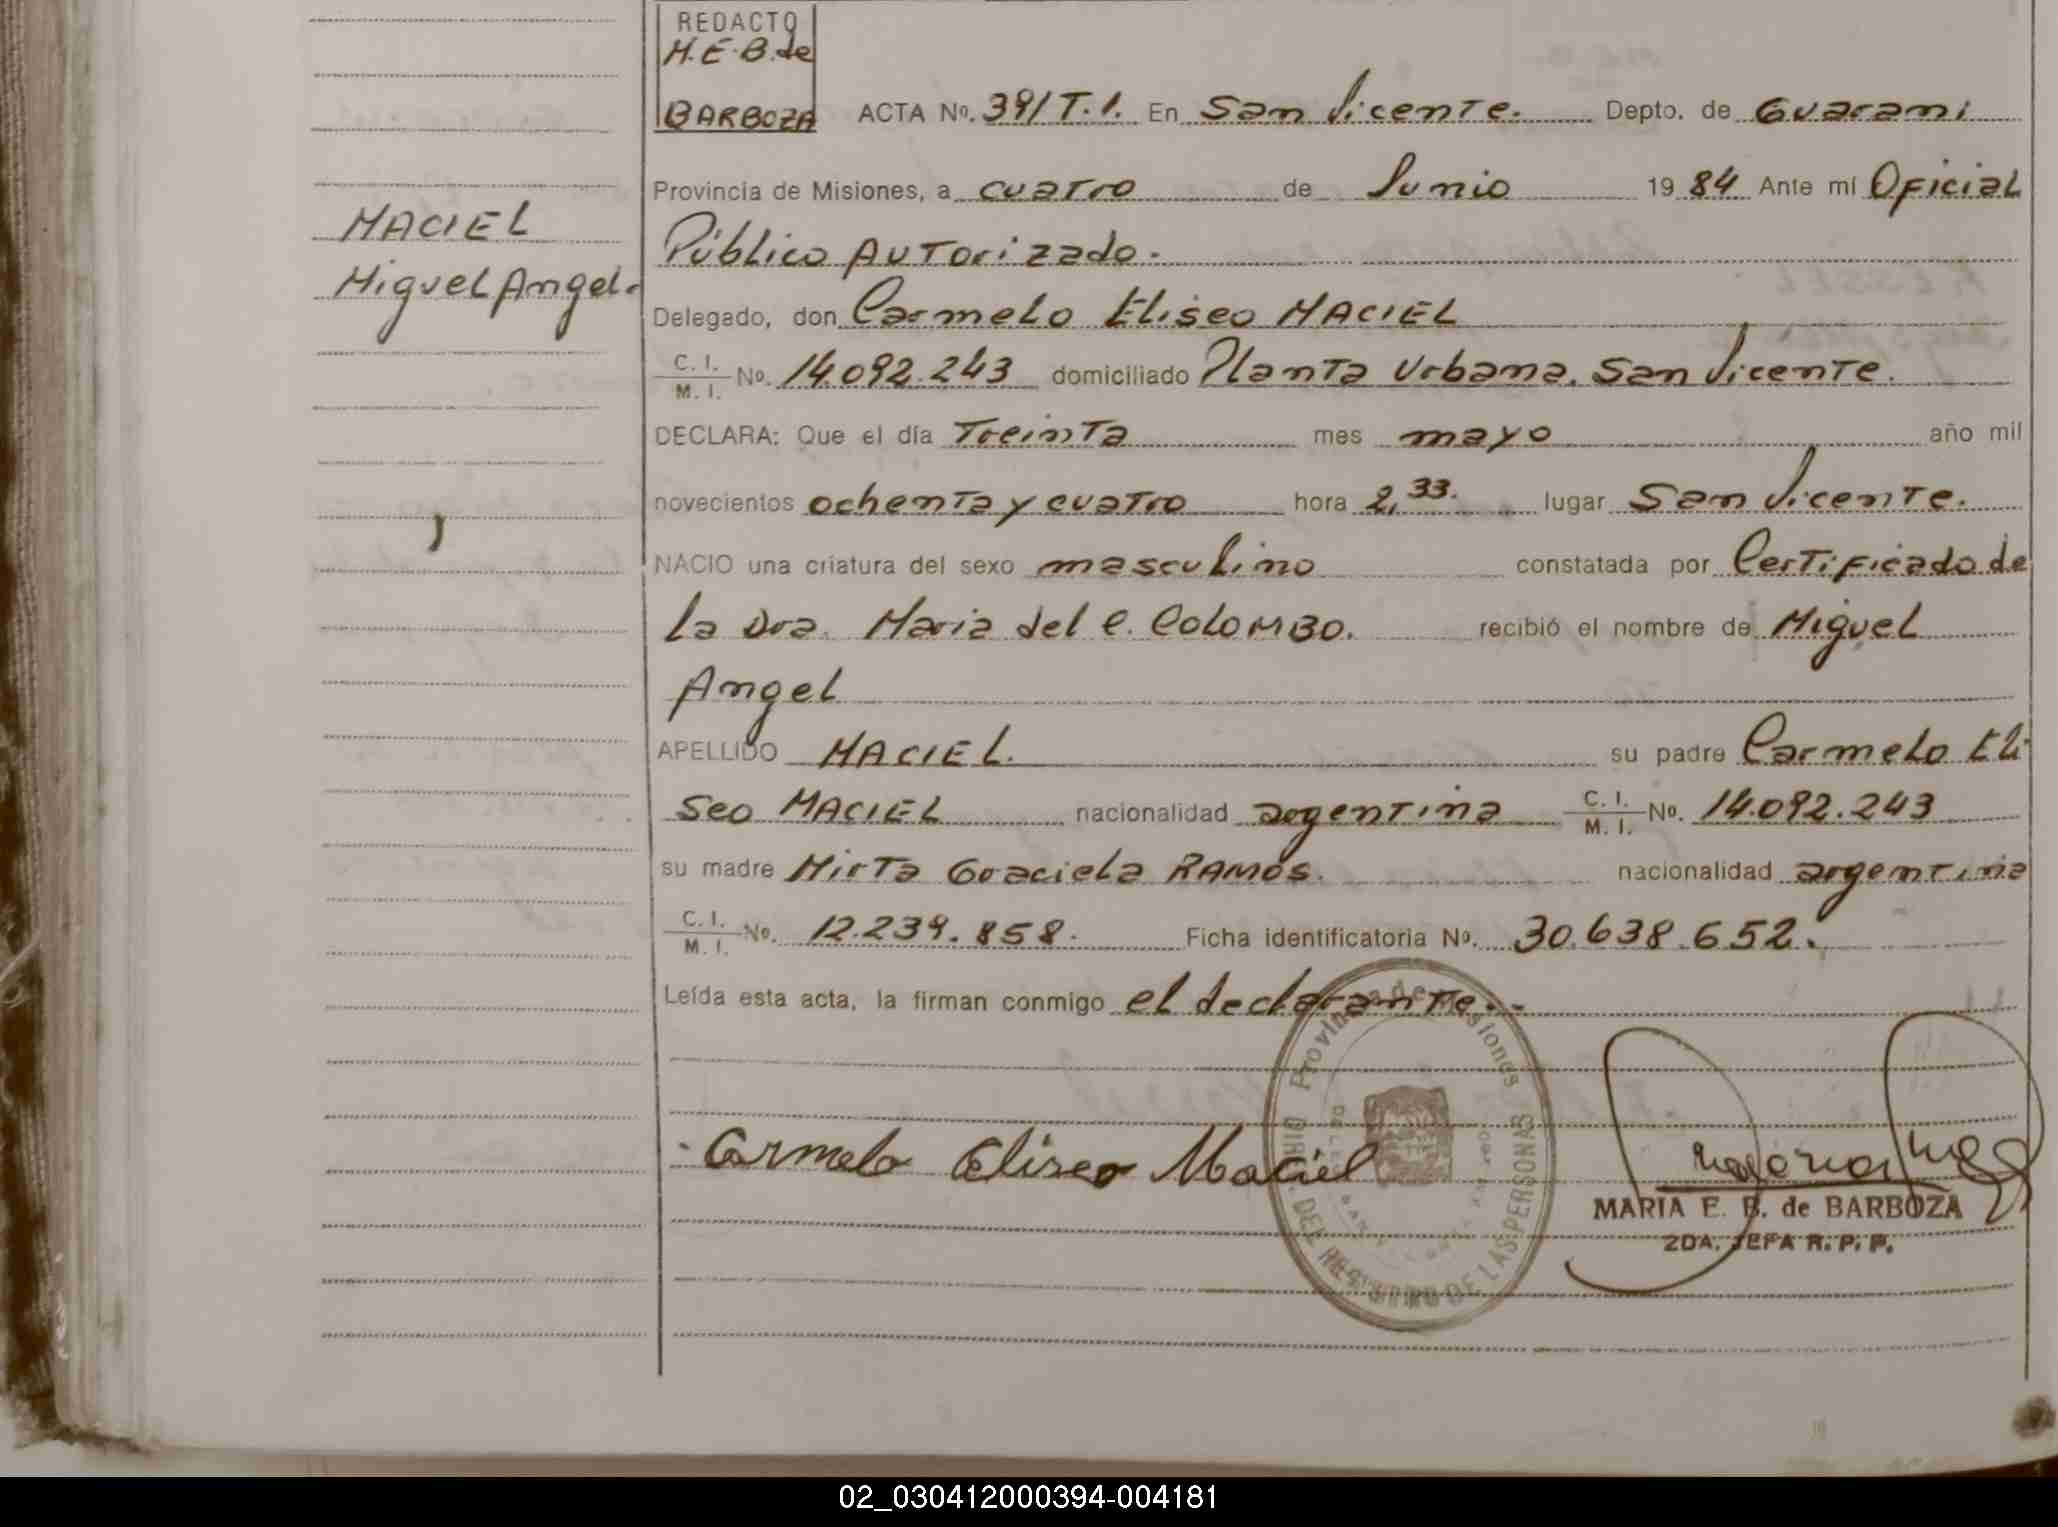 REDACTO
M.E.B. de
BARBOZA
ACTA Nº. 391/T.1. En San Vicente. Depto. de Guarami
Provincia de Misiones, a cuatro de Junio 19 84 Ante mí Oficial
Público Autorizado.
MACIEL
Miguel Angel.
Delegado, don Carmelo Eliseo MACIEL
C. I.
M. I. Nº. 14.092.243 domiciliado Planta Urbana. San Vicente.
DECLARA: Que el día Treinta mes mayo año mil
novecientos ochenta y cuatro hora 2,33. lugar San Vicente.
NACIO una criatura del sexo masculino constatada por Certificado de
la Dra. Maria del C. COLOMBO. recibió el nombre de Miguel
Angel
APELLIDO MACIEL. su padre Carmelo Eli
seo MACIEL nacionalidad argentina C. I.
M. I. Nº. 14.092.243
su madre Mirta Graciela RAMOS. nacionalidad argentina
C. I.
M. I. Nº. 12.239.858. Ficha identificatoria Nº. 30.638.652.
Leída esta acta, la firman conmigo el declarante.-
Provincia de Misiones
DEL REGISTRO DE LAS PERSONAS
Carmelo Eliseo Maciel
MARIA E. B. de BARBOZA
2DA. JEFA R. P. P.
02_030412000394-004181